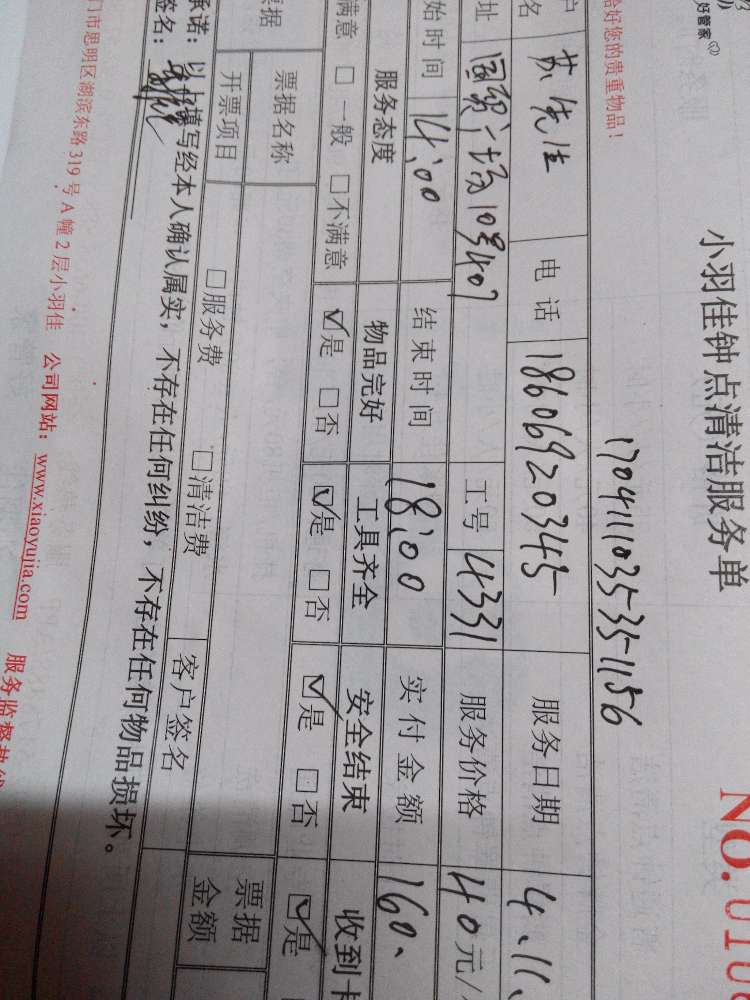 好管家
小羽佳钟点清洁服务单
NO.
恰好您的贵重物品！
17041110353535-1156
名 苏先生 电话 18606920345 服务日期 4.11.
址 国贸广场10号407 工号 4331 服务价格 40元/
始时间 14:00 结束时间 18:00 实付金额 160.
服务态度 物品完好 工具齐全 安全结束 收到卡
满意 □一般 □不满意 ☑是 □否 ☑是 □否 ☑是 □否 ☑是
票据 票据名称 票据
开票项目 □服务费 □清洁费 客户签名 金额
承诺：以上填写经本人确认属实，不存在任何纠纷，不存在任何物品损坏。
签名：
门市思明区湖滨东路319号A幢2层小羽佳 公司网站：www.xiaoyujia.com 服务监督热线